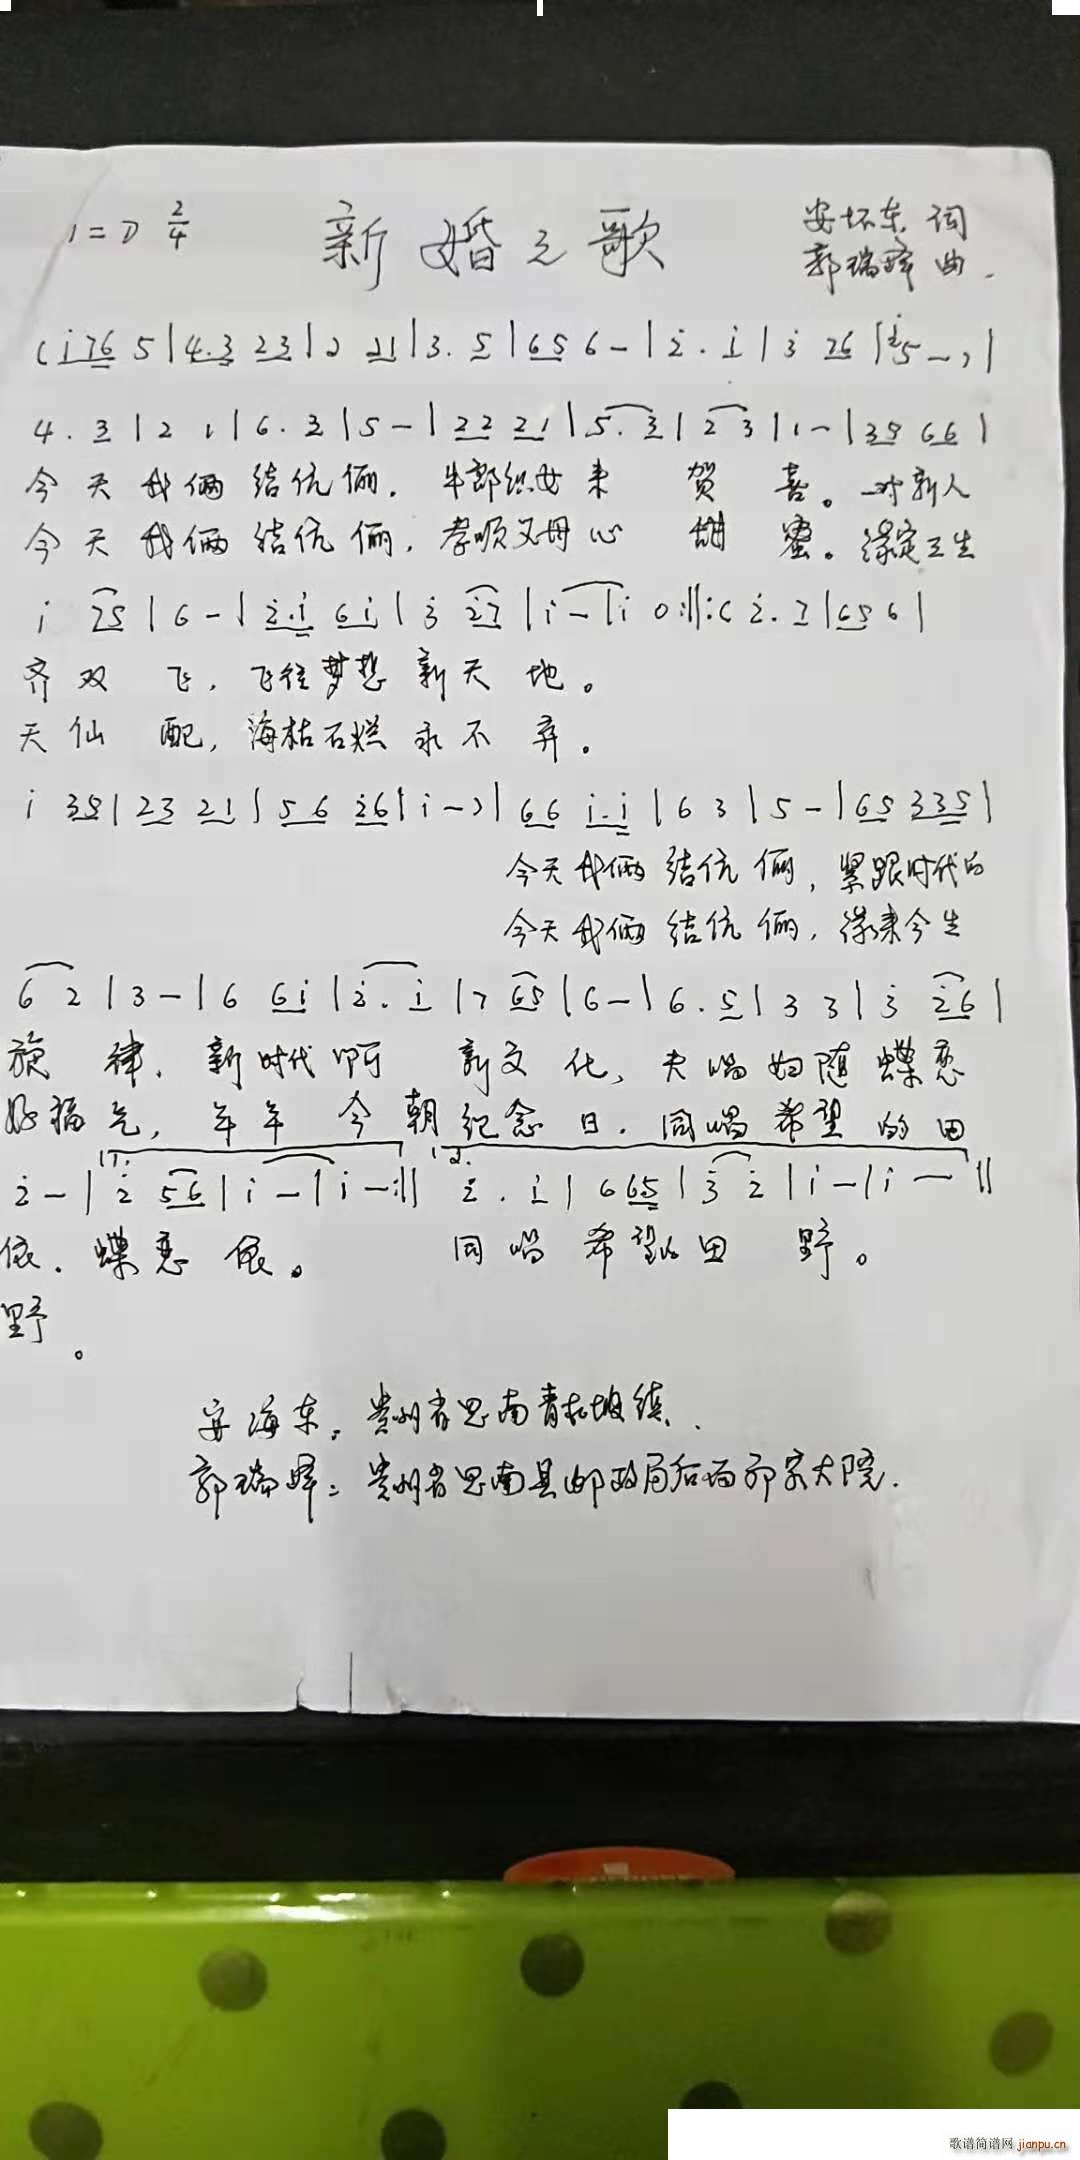 1=D 2/4 新婚之歌 安怀东 词
郭瑞峰 曲.
(i76 5|4.3 23|2 21|3. 5|65 6-|2. i|3 26|5-)|
4. 3|2 1|6. 3|5-|22 21|5. 3|2 3|1-|35 66|
今天我俩结伉俪. 牛郎织女来 贺 喜。一对新人
今天我俩结伉俪, 孝顺父母心 甜 蜜。缘定三生
i 25|6-|2.i 6i|3 27|i-|i 0:||:(2. 7|656|
齐双 飞, 飞往梦想新天 地。
天仙 配, 海枯石烂永不 弃。
i 35|23 21|56 26|i-)|66 i.i|6 3|5-|65 335|
今天我俩结伉俪, 紧跟时代的
今天我俩结伉俪, 缘来今生
6 2|3-|6 6i|2. i|7 65|6-|6. 5|3 3|3 26|
旋 律. 新时代啊 新文化, 夫唱妇随蝶恋
好福气, 年年 今朝纪念日. 同唱希望的田
1. 2.
2-|2 56|i-|i-:|| 2. i|6 65|3 2|i-|i-||
依. 蝶恋依。 同唱希望的田 野。
野。
安海东: 贵州省思南青杠坡镇.
郭瑞峰: 贵州省思南县邮政局后面邓家大院.
歌谱简谱网 jianpu.cn